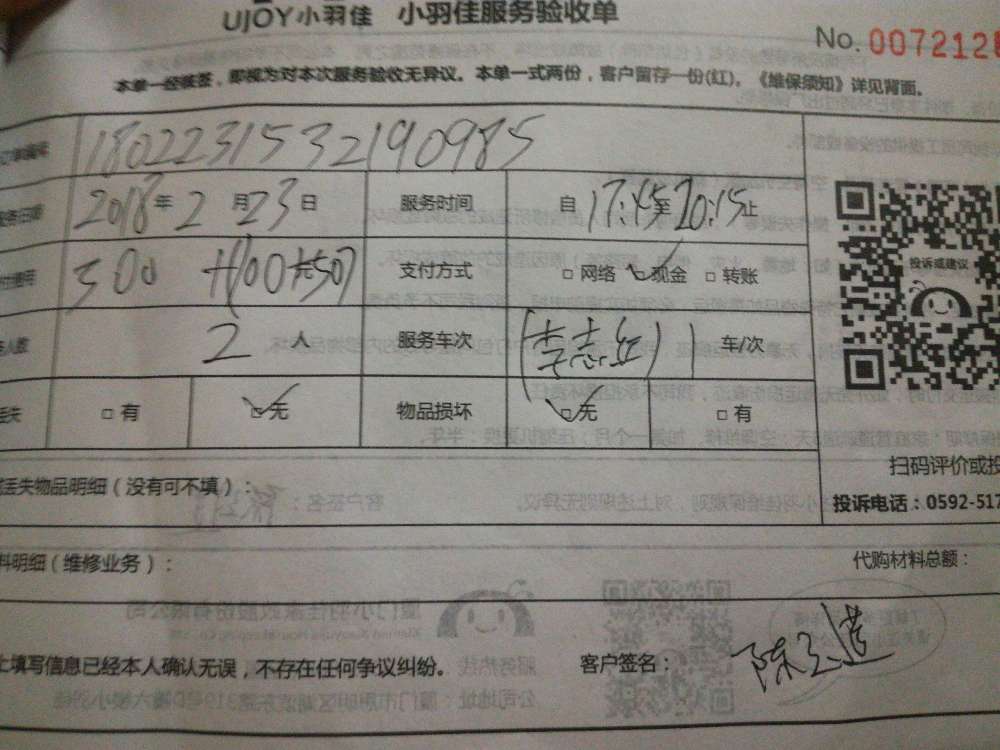 UJOY小羽佳 小羽佳服务验收单
No. 0072128
本单一经核签，即视为对本次服务验收无异议。本单一式两份，客户留存一份(红)。《维保须知》详见背面。
订单编号 1802231532190985
服务日期 2018年2月23日 服务时间 自17:45至20:15止
付费用 500 +(100元50) 支付方式 □网络 ☑现金 □转账
务人数 2人 服务车次 (李志红) 1车/次
丢失 □有 ☑无 物品损坏 ☑无 □有
投诉或建议
扫码评价或投
丢失物品明细（没有可不填）：
投诉电话：0592-517
料明细（维修业务）： 代购材料总额：
上填写信息已经本人确认无误，不存在任何争议纠纷。 客户签名：陈